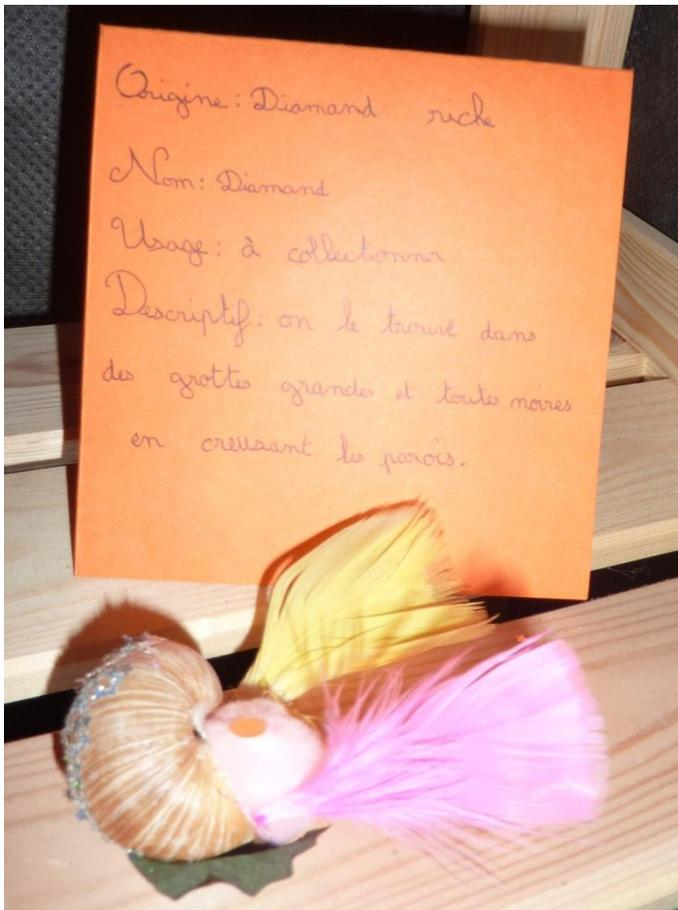 Origine : Diamand riche
Nom : Diamand
Usage : à collectionner
Descriptif : on le trouve dans
des grottes grandes et toutes noires
en creusant les parois.